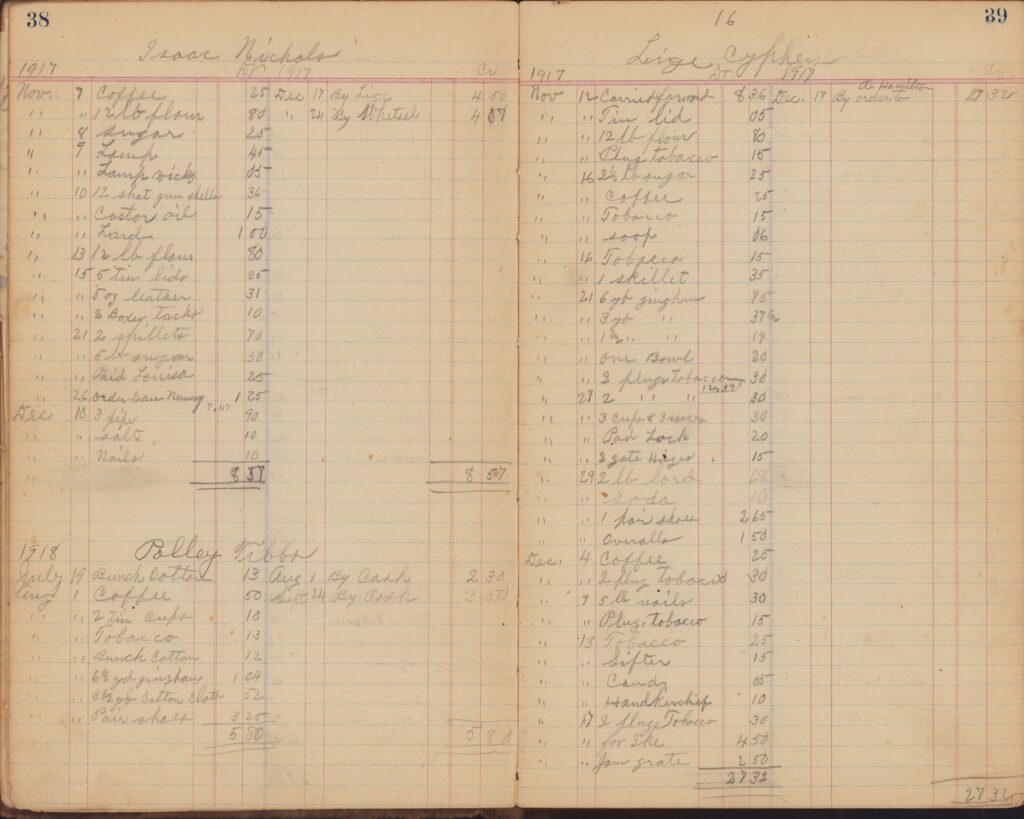 38
Isaac Nichols
1917 Dr 1917 Cr
Nov. 7 Coffee 25 Dec 17 By Lige 4 50
" " 12 lb flour 80 " 24 By Whetsel 4 07
" 8 sugar 25
" 9 Lamp 45
" " Lamp wick 05
" 10 12 shot gun shells 36
" " Castor oil 15
" " Lard 1 00
" 13 12 lb flour 80
" 15 5 tin lids 25
" " 5 oz leather 31
" " 2 Boxes tacks 10
" 21 2 skillets 70
" " 5 lb sugar 50
" " Paid Louisa 25
" 26 order 1 25
7.47
Dec 10 3 pipe 90
" " salt 10
" " Nails 10
8 57 8 57
1918 Polley Tibbs
July 19 Bunch Cotton 13 Aug 1 By Cash 2 30
Aug 1 Coffee 50 Sept 24 By Cash 3 50
" " 2 Tin Cups 10
" " Tobacco 13
" " Bunch Cotton 12
" " 6½ yd gingham 1 04
" " 3½ yd Cotton Cloth 52
" " Pair shoes 3 25
5 80 5 80
16 39
Lige Cypher
1917 Dr 1917 Cr
Nov 12 Carried forward 8 36 Dec. 17 By order to A. Hamilton 27 32
" " Tin lid 05
" " 12 lb flour 80
" " Plug tobacco 15
" 16 2½ lb sugar 25
" " Coffee 25
" " Tobacco 15
" " soop 06
" 16 Tobacco 15
" " 1 skillet 35
" 21 6 yd gingham 75
" " 3 yd " " 37½
" " 1½ " " 19
" " One Bowl 20
" " 2 plugs tobacco 30
" 27 2 " " 30
" " 3 cups & 3 saucers 30
" " Pad Lock 20
" " 2 gate Hinges 15
" 29 2 lb lard 68
" " soda 10
" " 1 pair shoes 2 65
" " Overalls 1 50
Dec. 4 Coffee 25
" " 2 plug tobacco 30
" 8 5 lb nails 30
" " Plug tobacco 15
" 13 Tobacco 25
" " Sifter 15
" " Candy 05
" " Handkerchief 10
" 17 2 plugs Tobacco 30
" " for Ike 4 50
" " Jam grate 2 50
27 32
27 32